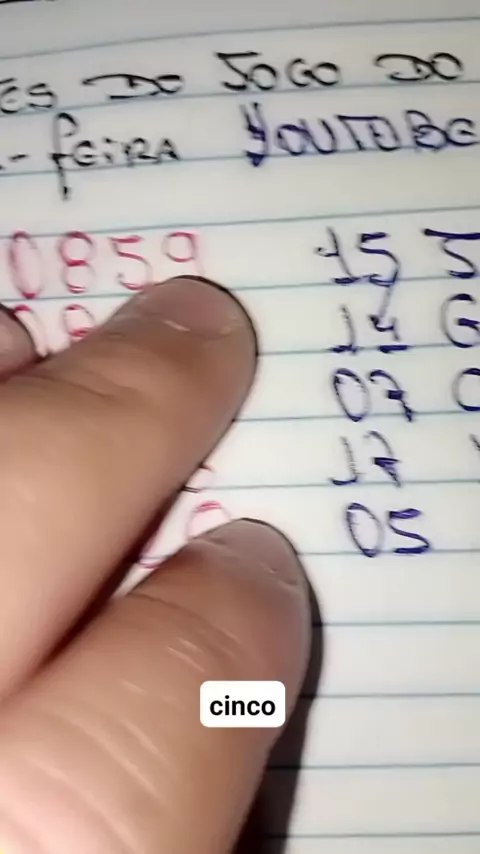 ES DO JOGO DO
- feira YOUTUBE
0859 15 J
08 14 G
07 C
17
05
cinco